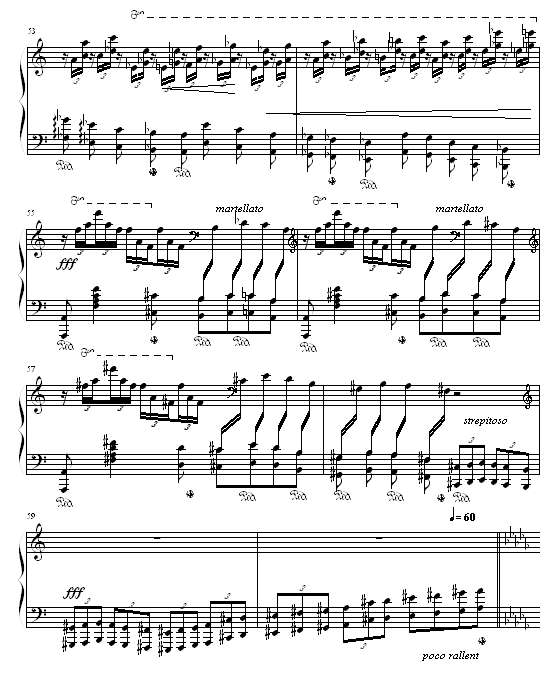 53
8va
55
8va
martellato
8va
martellato
fff
57
8va
strepitoso
59
♩= 60
fff
poco rallent